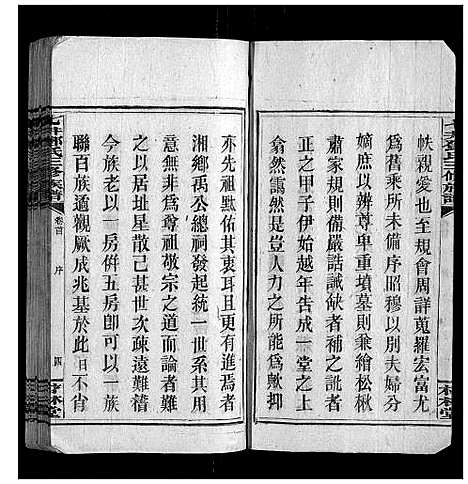 帙親愛也至規會周詳蒐羅宏富尤
為舊乘所未備序昭穆以別夫婦分
嫡庶以辨尊卑重墳墓則兼繪松楸
肅家規則備嚴誥誡缺者補之訛者
正之甲子伊始越年告成一堂之上
翕然靄然是豈人力之所能為歟抑
亦先祖默佑其衷耳且更有進焉者
湘鄉禹公總祠發起統一世系其用
意無非為尊祖敬宗之道而論者難
之以居址星散己甚世次疎遠難稽
今族老以一房併五房卽可以一族
聯百族通觀厥成兆基於此日不肖
氏三修族譜
卷首
序
四